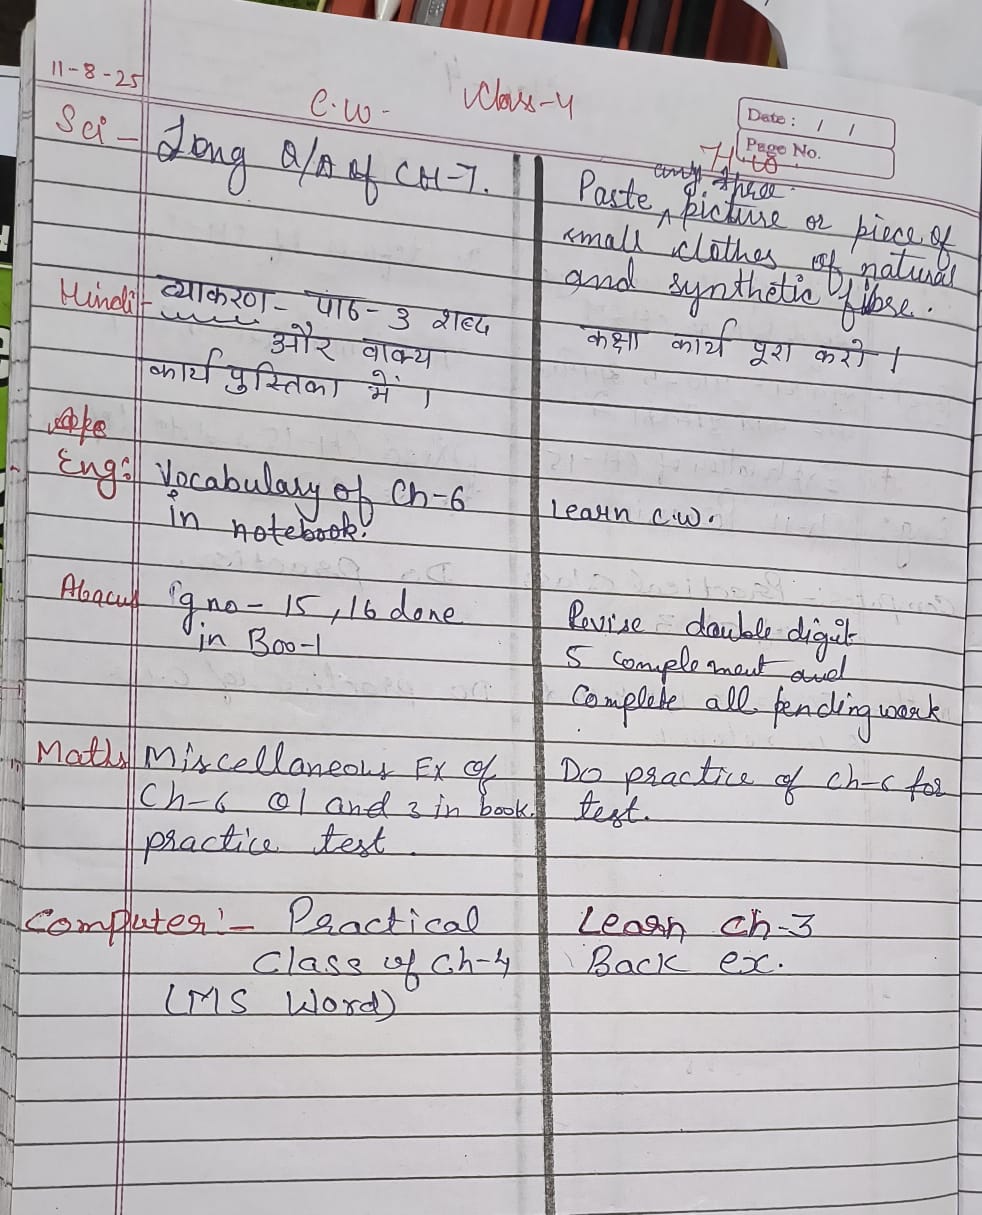 11-8-25
C.W- Class-4
Date : / /
Page No.
H.W
Sci - Long Q/A of CH-7.
any three
Paste ^ picture or piece of
small clothes of natural
and synthetic fibre.
Hindi - व्याकरण - पाठ - 3 शब्द
और वाक्य
कार्य पुस्तिका में ।
कक्षा कार्य पूरा करो ।
Eng: Vocabulary of Ch-6
in notebook.
Learn c.w.
Abacus Pg no - 15, 16 done
in Boo-1
Revise double digit
5 complement and
Complete all pending work
Maths Miscellaneous Ex of
Ch-6 Q1 and 3 in book.
practice test.
Do practice of ch-6 for
test.
Computer :- Practical
Class of Ch-4
(MS Word)
Learn Ch-3
Back ex.